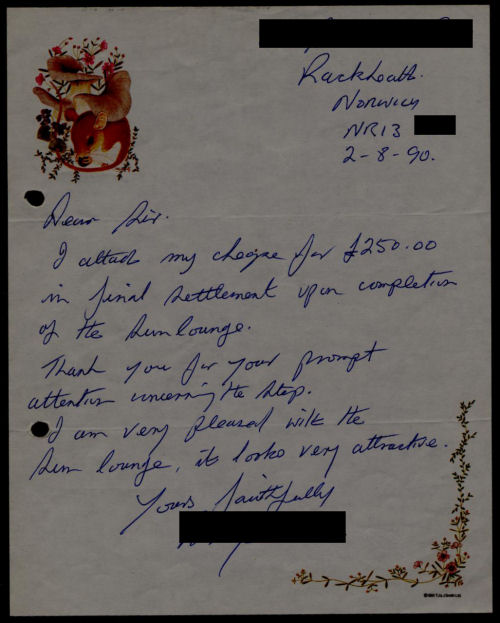 Rackheath.
Norwich
NR13
2-8-90.
Dear Sir.
I attach my cheque for £250.00
in final settlement upon completion
of the Sun lounge.
Thank you for your prompt
attention concerning the step.
I am very pleased with the
Sun lounge, it looks very attractive.
Yours faithfully